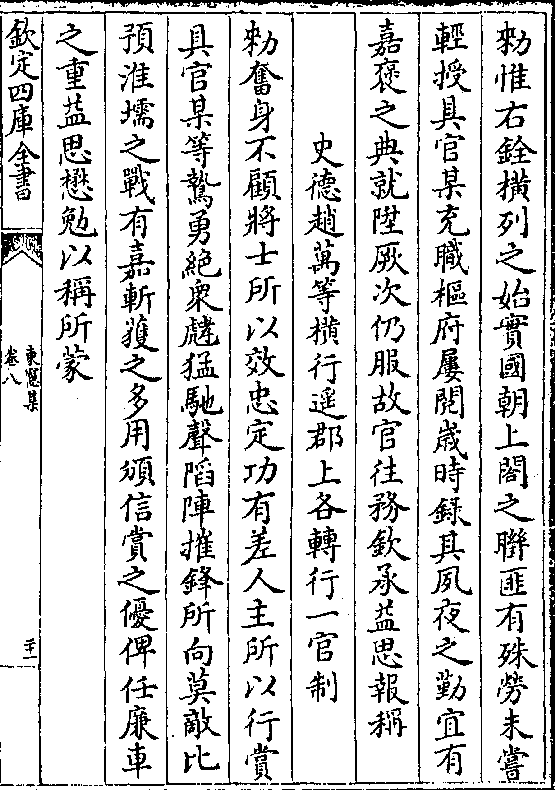 勅惟右銓横列之始實國朝上閤之聨匪有殊勞未嘗
輕授具官某充職樞府屢閲歳時錄其夙夜之勤宜有
嘉褒之典就陞厥次仍服故官往務欽承益思報稱
史德趙萬等横行遥郡上各轉行一官制
勅奮身不顧將士所以效忠定功有差人主所以行賞
具官某等驁勇絶衆趪猛馳聲䧟陣摧鋒所向莫敵比
預淮壖之戰有嘉斬獲之多用頒信賞之優俾任廉車
之重益思懋勉以稱所蒙
欽定四庫全書
東窓集
卷八